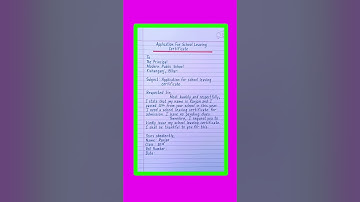 Application For School Leaving
Certificate
To
The Principal
Modern Public School
Kishanganj, Bihar
Subject: Application for school leaving
certificate.
Respected Sir,
Most humbly and respectfully,
I state that my name is Ranjan and I
passed 10th from your school in this year.
I need a school leaving certificate for
admission. I have no pending dues.
Therefore, I request you to
kindly issue my school leaving certificate.
I shall be thankful to you for this.
Yours obediently,
Name: Ranjan
Class: 10th
Roll Number:
Date: